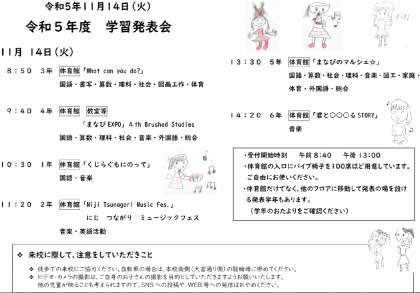 令和5年11月14日(火)
令和5年度 学習発表会
11月 14日(火)
8:50 3年 体育館「What can you do?」
国語・書写・算数・理科・社会・図画工作・体育
9:40 4年 体育館 教室等
「まなびEXPO」4th Brushed Studies
国語・算数・理科・社会・音楽・外国語・総合
10:30 1年 体育館「くじらぐもにのって」
国語・音楽
11:20 2年 体育館「Niji Tsunagari Music Fes.」
にじ つながり ミュージックフェス
音楽・英語活動
13:30 5年 体育館「まなびのマルシェ☆」
国語・算数・社会・理科・音楽・図工・家庭・
体育・外国語・総合
14:20 6年 体育館「君と○○○る STORY」
音楽
・受付開始時刻 午前 8:40 午後 13:00
・体育館の入口にパイプ椅子を100席ほど用意しています。
ご自由にお使いください。
・体育館だけでなく、他のフロアに移動して発表の場を設け
る発表学年もあります。
(学年のおたよりをご確認ください)
❖ 来校に際して、注意をしていただきこと
❖ 徒歩での来校にご協力ください。自転車の場合は、本校南側(大宮通り側)の駐輪場に停めてください。
❖ ビデオ・カメラの撮影は、ご自身のお子さんの撮影を目的としていただきますようお願いいたします。
他の児童が映ることも考えられますので、SNSへの投稿や、WEB等への発信はおやめください。